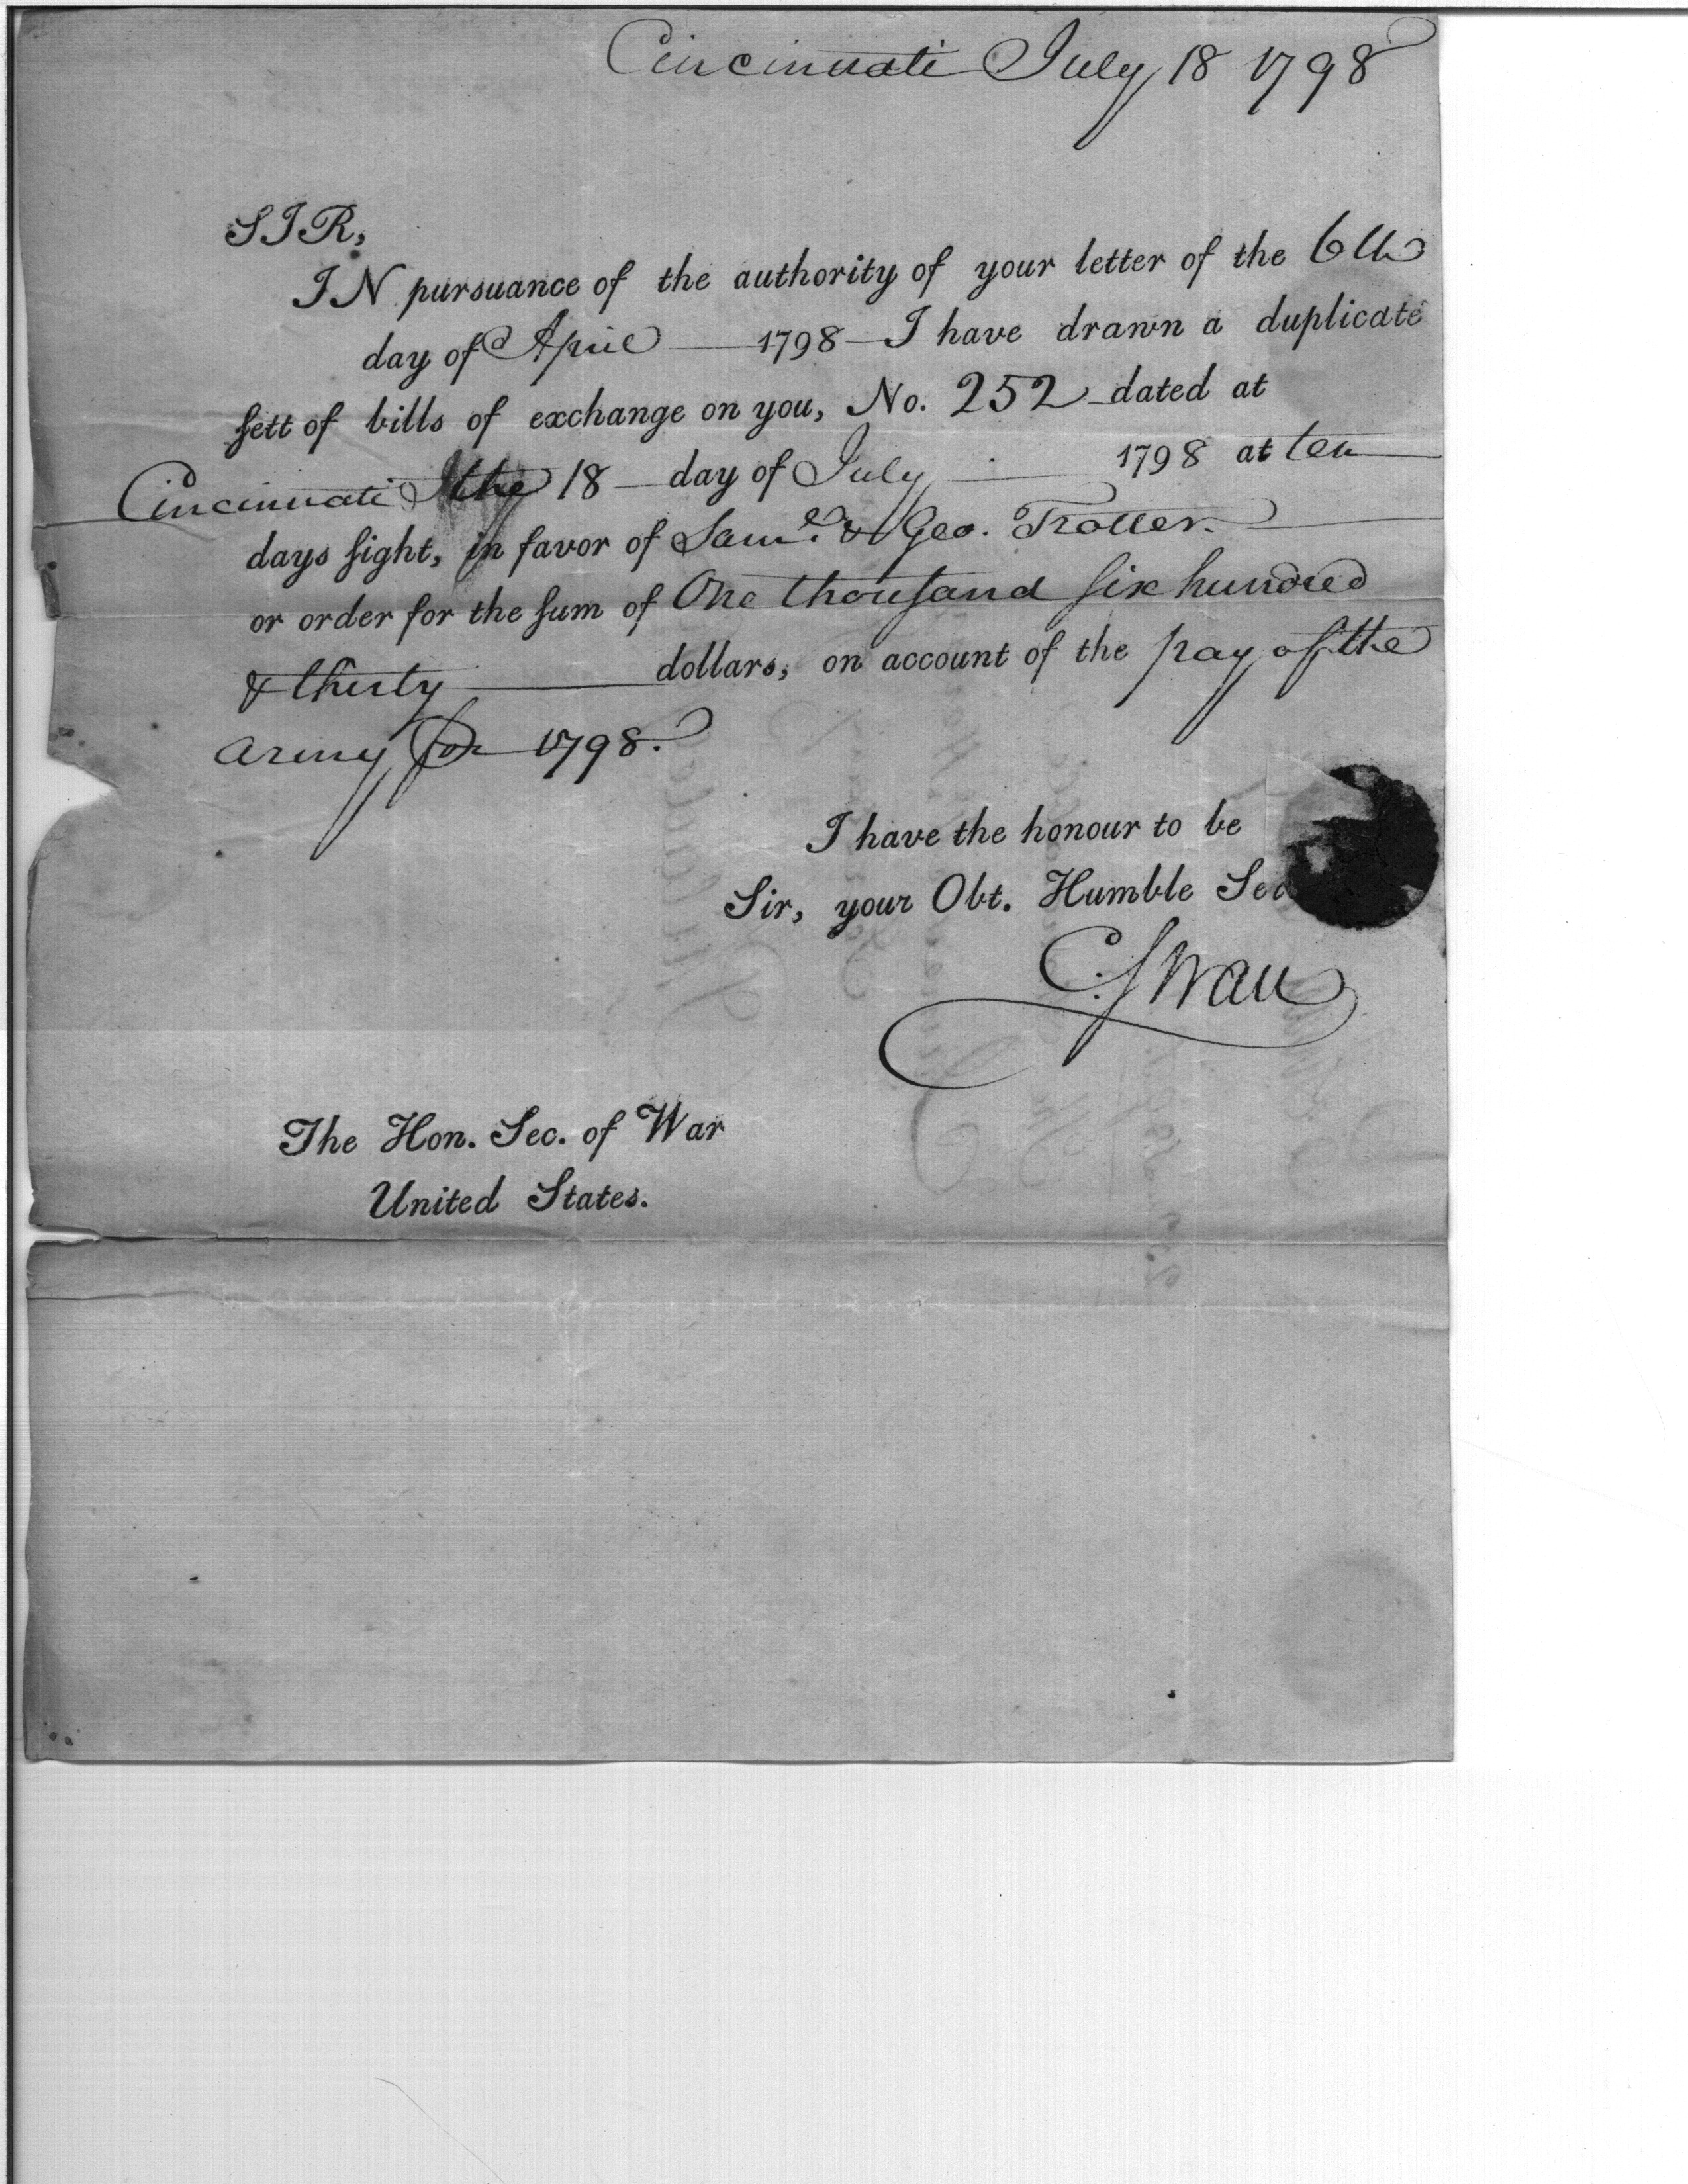 Cincinnati July 18 1798
SIR,
IN pursuance of the authority of your letter of the 6th
day of April 1798 I have drawn a duplicate
sett of bills of exchange on you, No. 252 dated at
Cincinnati the 18 day of July 1798 at ten
days sight, in favor of Saml. & Geo. Trotter.
or order for the sum of One thousand six hundred
& thirty dollars, on account of the pay of the
army for 1798.
I have the honour to be
Sir, your Obt. Humble
C. Swan
The Hon. Sec. of War
United States.